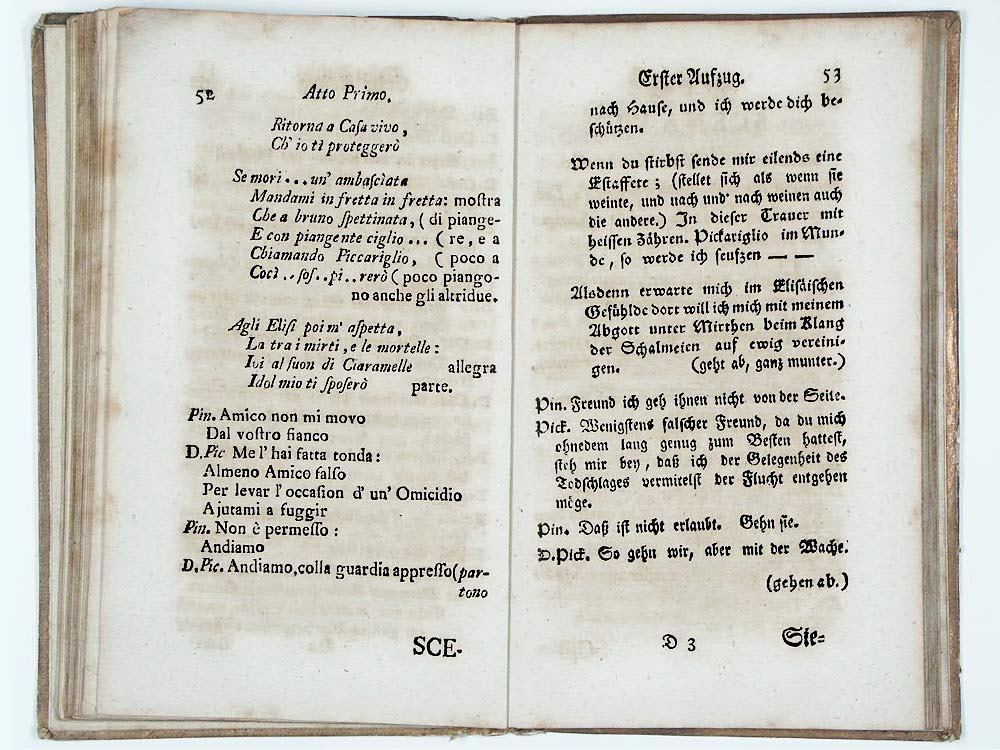 52 Atto Primo.
Ritorna a Casa vivo,
Ch' io ti proteggerò
Se mori... un' ambasciata
Mandami in fretta in fretta: mostra
Che a bruno spettinata, ( di piange-
E con piangente ciglio... ( re, e a
Chiamando Piccariglio, ( poco a
Cocì..sos..pi..rerò ( poco piango-
no anche gli altridue.
Agli Elisi poi m' aspetta,
La tra i mirti, e le mortelle:
Ivi al suon di Ciaramelle allegra
Idol mio ti sposerò parte.
Pin. Amico non mi movo
Dal vostro fianco
D.Pic Me l' hai fatta tonda:
Almeno Amico falso
Per levar l' occasion d' un' Omicidio
Ajutami a fuggir
Pin. Non è permesso:
Andiamo
D.Pic. Andiamo, colla guardia appresso (par-
tono
SCE-
Erster Aufzug. 53
nach Hause, und ich werde dich be-
schützen.
Wenn du stirbst sende mir eilends eine
Estaffete; (stellet sich als wenn sie
weinte, und nach und nach weinen auch
die andere.) In dieser Trauer mit
heissen Zähren. Pickariglio im Mun-
de, so werde ich seufzen — —
Alsdenn erwarte mich im Elisäischen
Gefühlde dort will ich mich mit meinem
Abgott unter Mirthen beim Klang
der Schalmeien auf ewig vereini-
gen. (geht ab, ganz munter.)
Pin. Freund ich geh ihnen nicht von der Seite.
Pick. Wenigstens falscher Freund, da du mich
ohnedem lang genug zum Besten hattest,
steh mir bey, daß ich der Gelegenheit des
Todschlages vermitelst der Flucht entgehen
möge.
Pin. Daß ist nicht erlaubt. Gehn sie.
D.Pick. So gehn wir, aber mit der Wache.
(gehen ab.)
D 3 Sie-